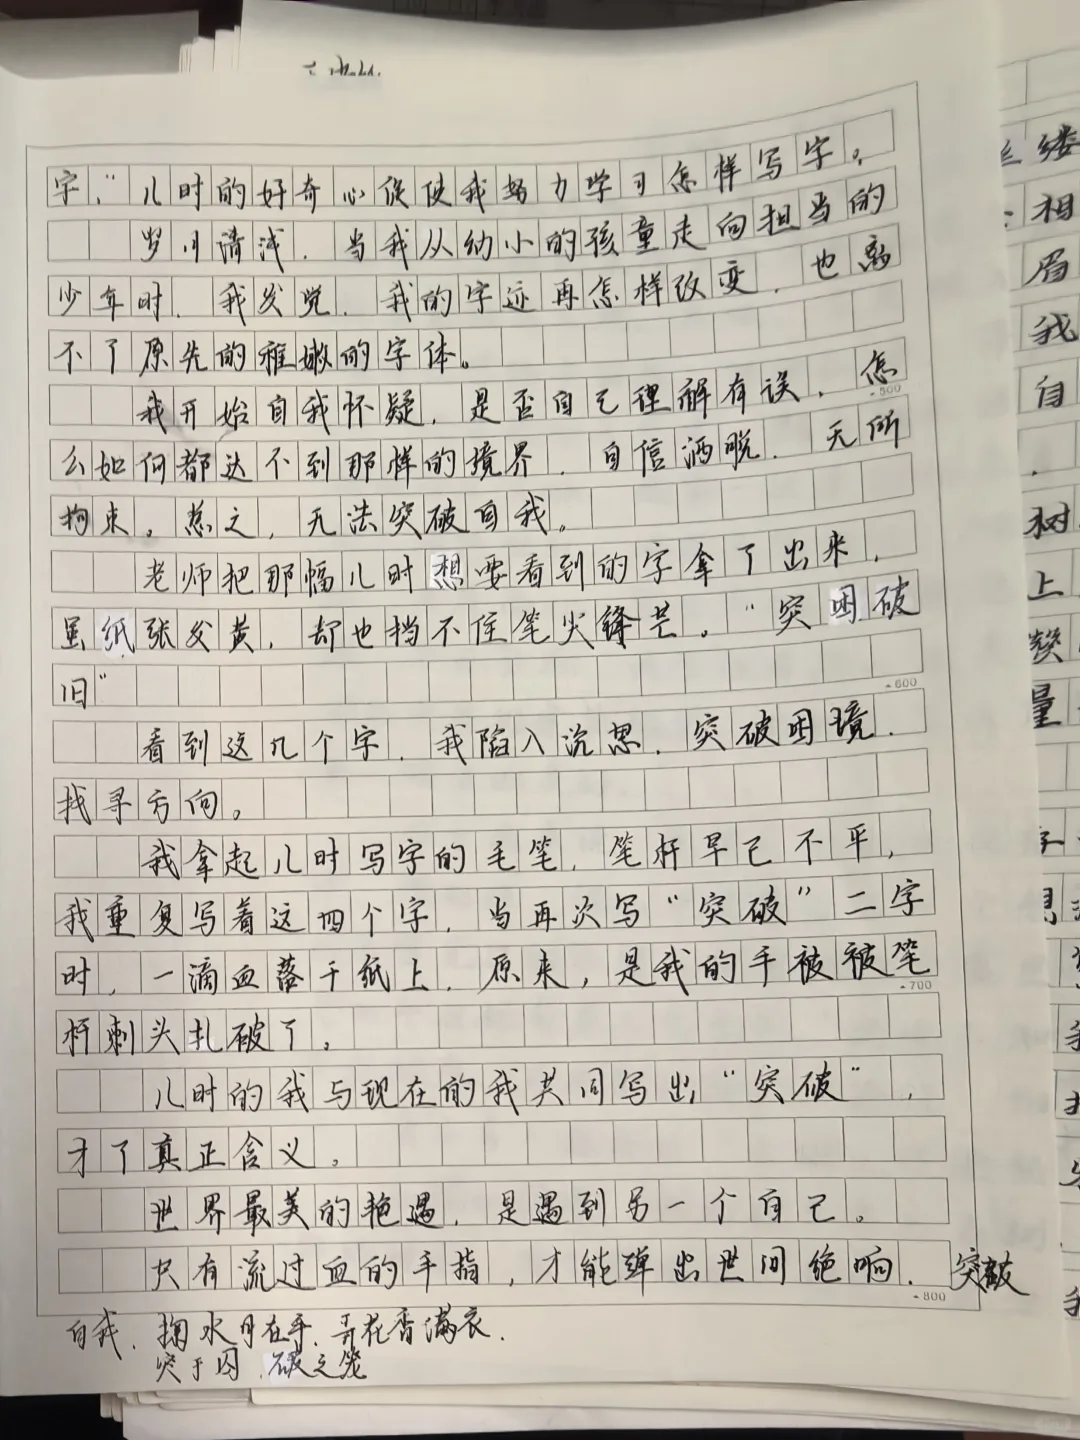 字,"儿时的好奇心促使我努力学习怎样写字。
岁月清浅,当我从幼小的孩童走向担当的
少年时,我发觉,我的字迹再怎样改变,也离
不了原先的稚嫩的字体。
我开始自我怀疑,是否自己理解有误,怎
500
么如何都达不到那样的境界,自信洒脱,无所
拘束。总之,无法突破自我。
老师把那幅儿时想要看到的字拿了出来,
虽纸张发黄,却也挡不住笔尖锋芒。"突困破
旧"
600
看到这几个字,我陷入沉思,突破困境,
找寻方向。
我拿起儿时写字的毛笔,笔杆早已不平,
我重复写着这四个字,当再次写"突破"二字
时,一滴血落于纸上,原来,是我的手被被笔
700
杆刺头扎破了。
儿时的我与现在的我共同写出"突破",
才了真正含义。
世界最美的艳遇,是遇到另一个自己。
只有流过血的手指,才能弹出世间绝响,突破
800
自我,掬水月在手,弄花香满衣,
突于囚,破之笼
缕
相
眉
我
自
树
上
量